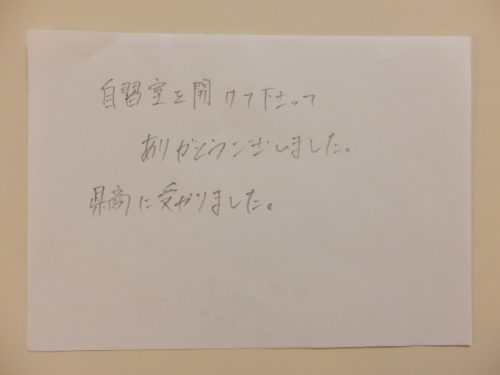 自習室を開けて下さって
ありがとうございました。
県商に受かりました。